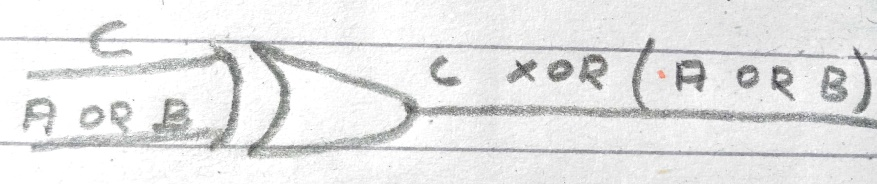 C
A OR B
C XOR (A OR B)